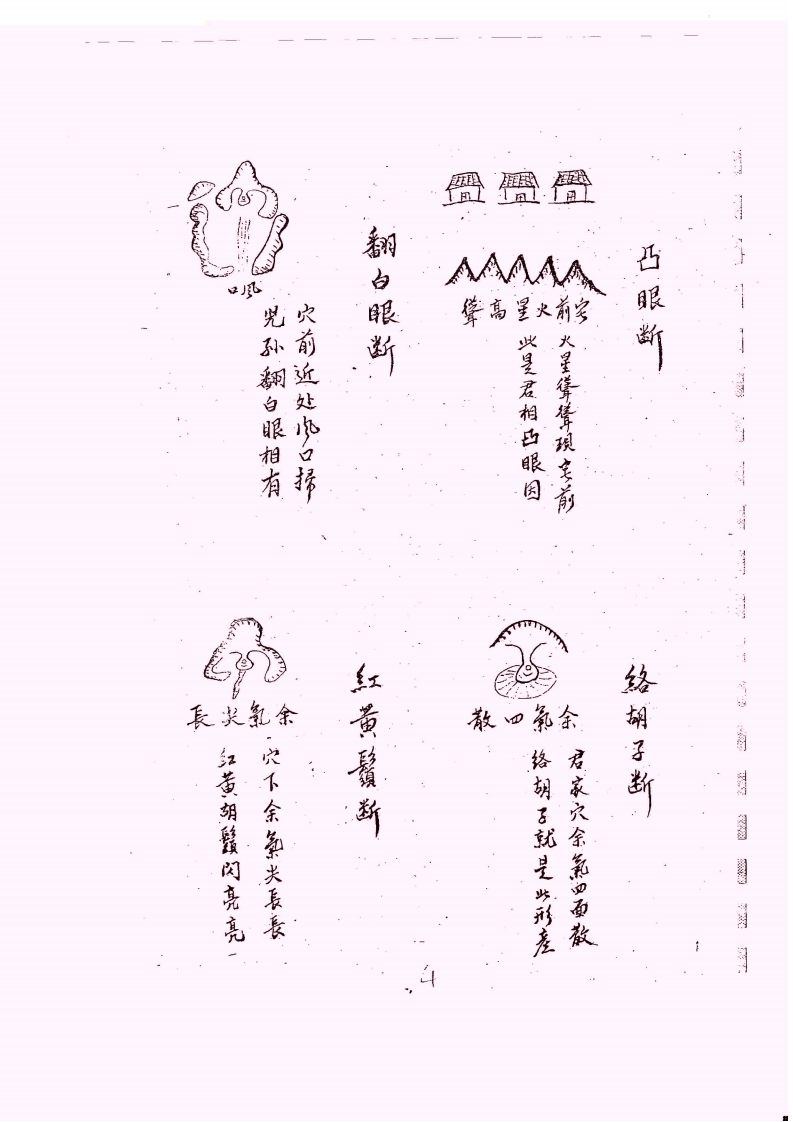 凸眼断
宅前火星高聳
火星聳聳現宅前
此是君相凸眼因
翻白眼断
風口
穴前近处風口掃
児孙翻白眼相有
络胡子断
余氣四散
君家穴余氣四面散
络胡子就是此形産
紅黄鬚断
余氣尖長
穴下余氣尖長長
红黄胡鬚闪亮亮
4